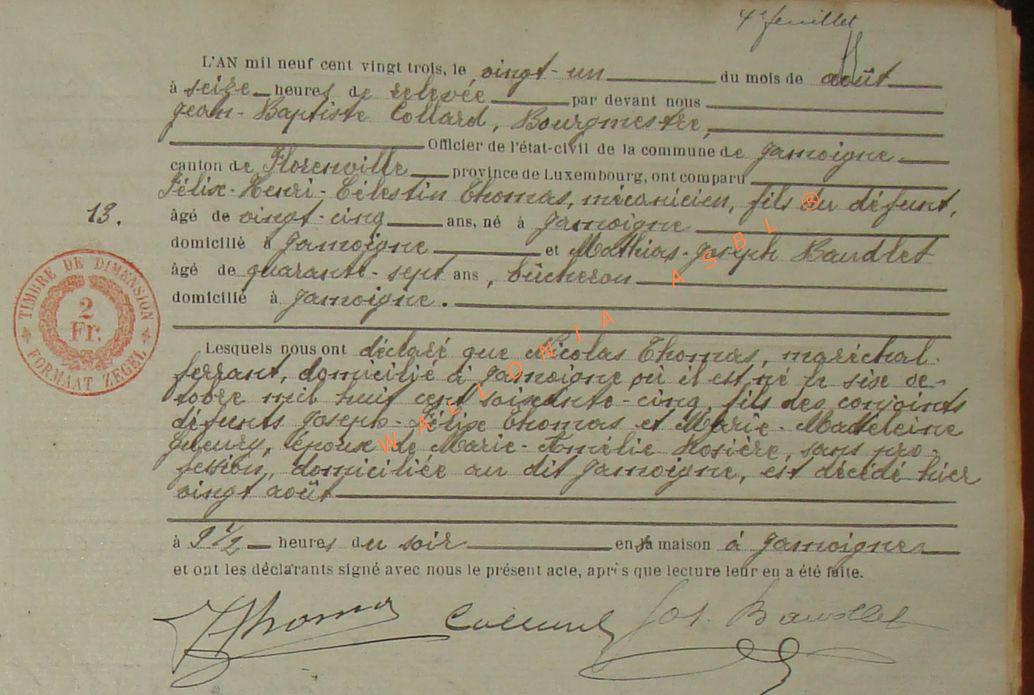 4e feuillet
L'AN mil neuf cent vingt trois, le vingt-un du mois de août
à seize heures de relevée par devant nous
Jean-Baptiste Collard, Bourgmestre,
Officier de l'état-civil de la commune de Jamoigne
canton de Florenville province de Luxembourg, ont comparu
Félix-Henri-Célestin Thomas, mécanicien, fils du défunt,
13.
âgé de vingt-cinq ans, né à Jamoigne
domicilié à Jamoigne et Mathias-Joseph Baudlet
âgé de quarante-sept ans, bûcheron
domicilié à Jamoigne.
TIMBRE DE DIMENSION
2
Fr.
FORMAAT ZEGEL
Lesquels nous ont déclaré que Nicolas Thomas, maréchal-
ferrant, domicilié à Jamoigne où il est né le six oc-
tobre mil huit cent soixante-cinq, fils des conjoints
défunts Joseph-Félix Thomas et Marie-Madeleine
époux de Marie-Amélie Rosière, sans pro-
fession, domiciliée au dit Jamoigne, est décédé hier
vingt août
à 9 1/2 heures du soir en sa maison à Jamoigne
et ont les déclarants signé avec nous le présent acte, après que lecture leur en a été faite.
JThomas Collard Jos. Baudlet
WALLONIA ASBL ®